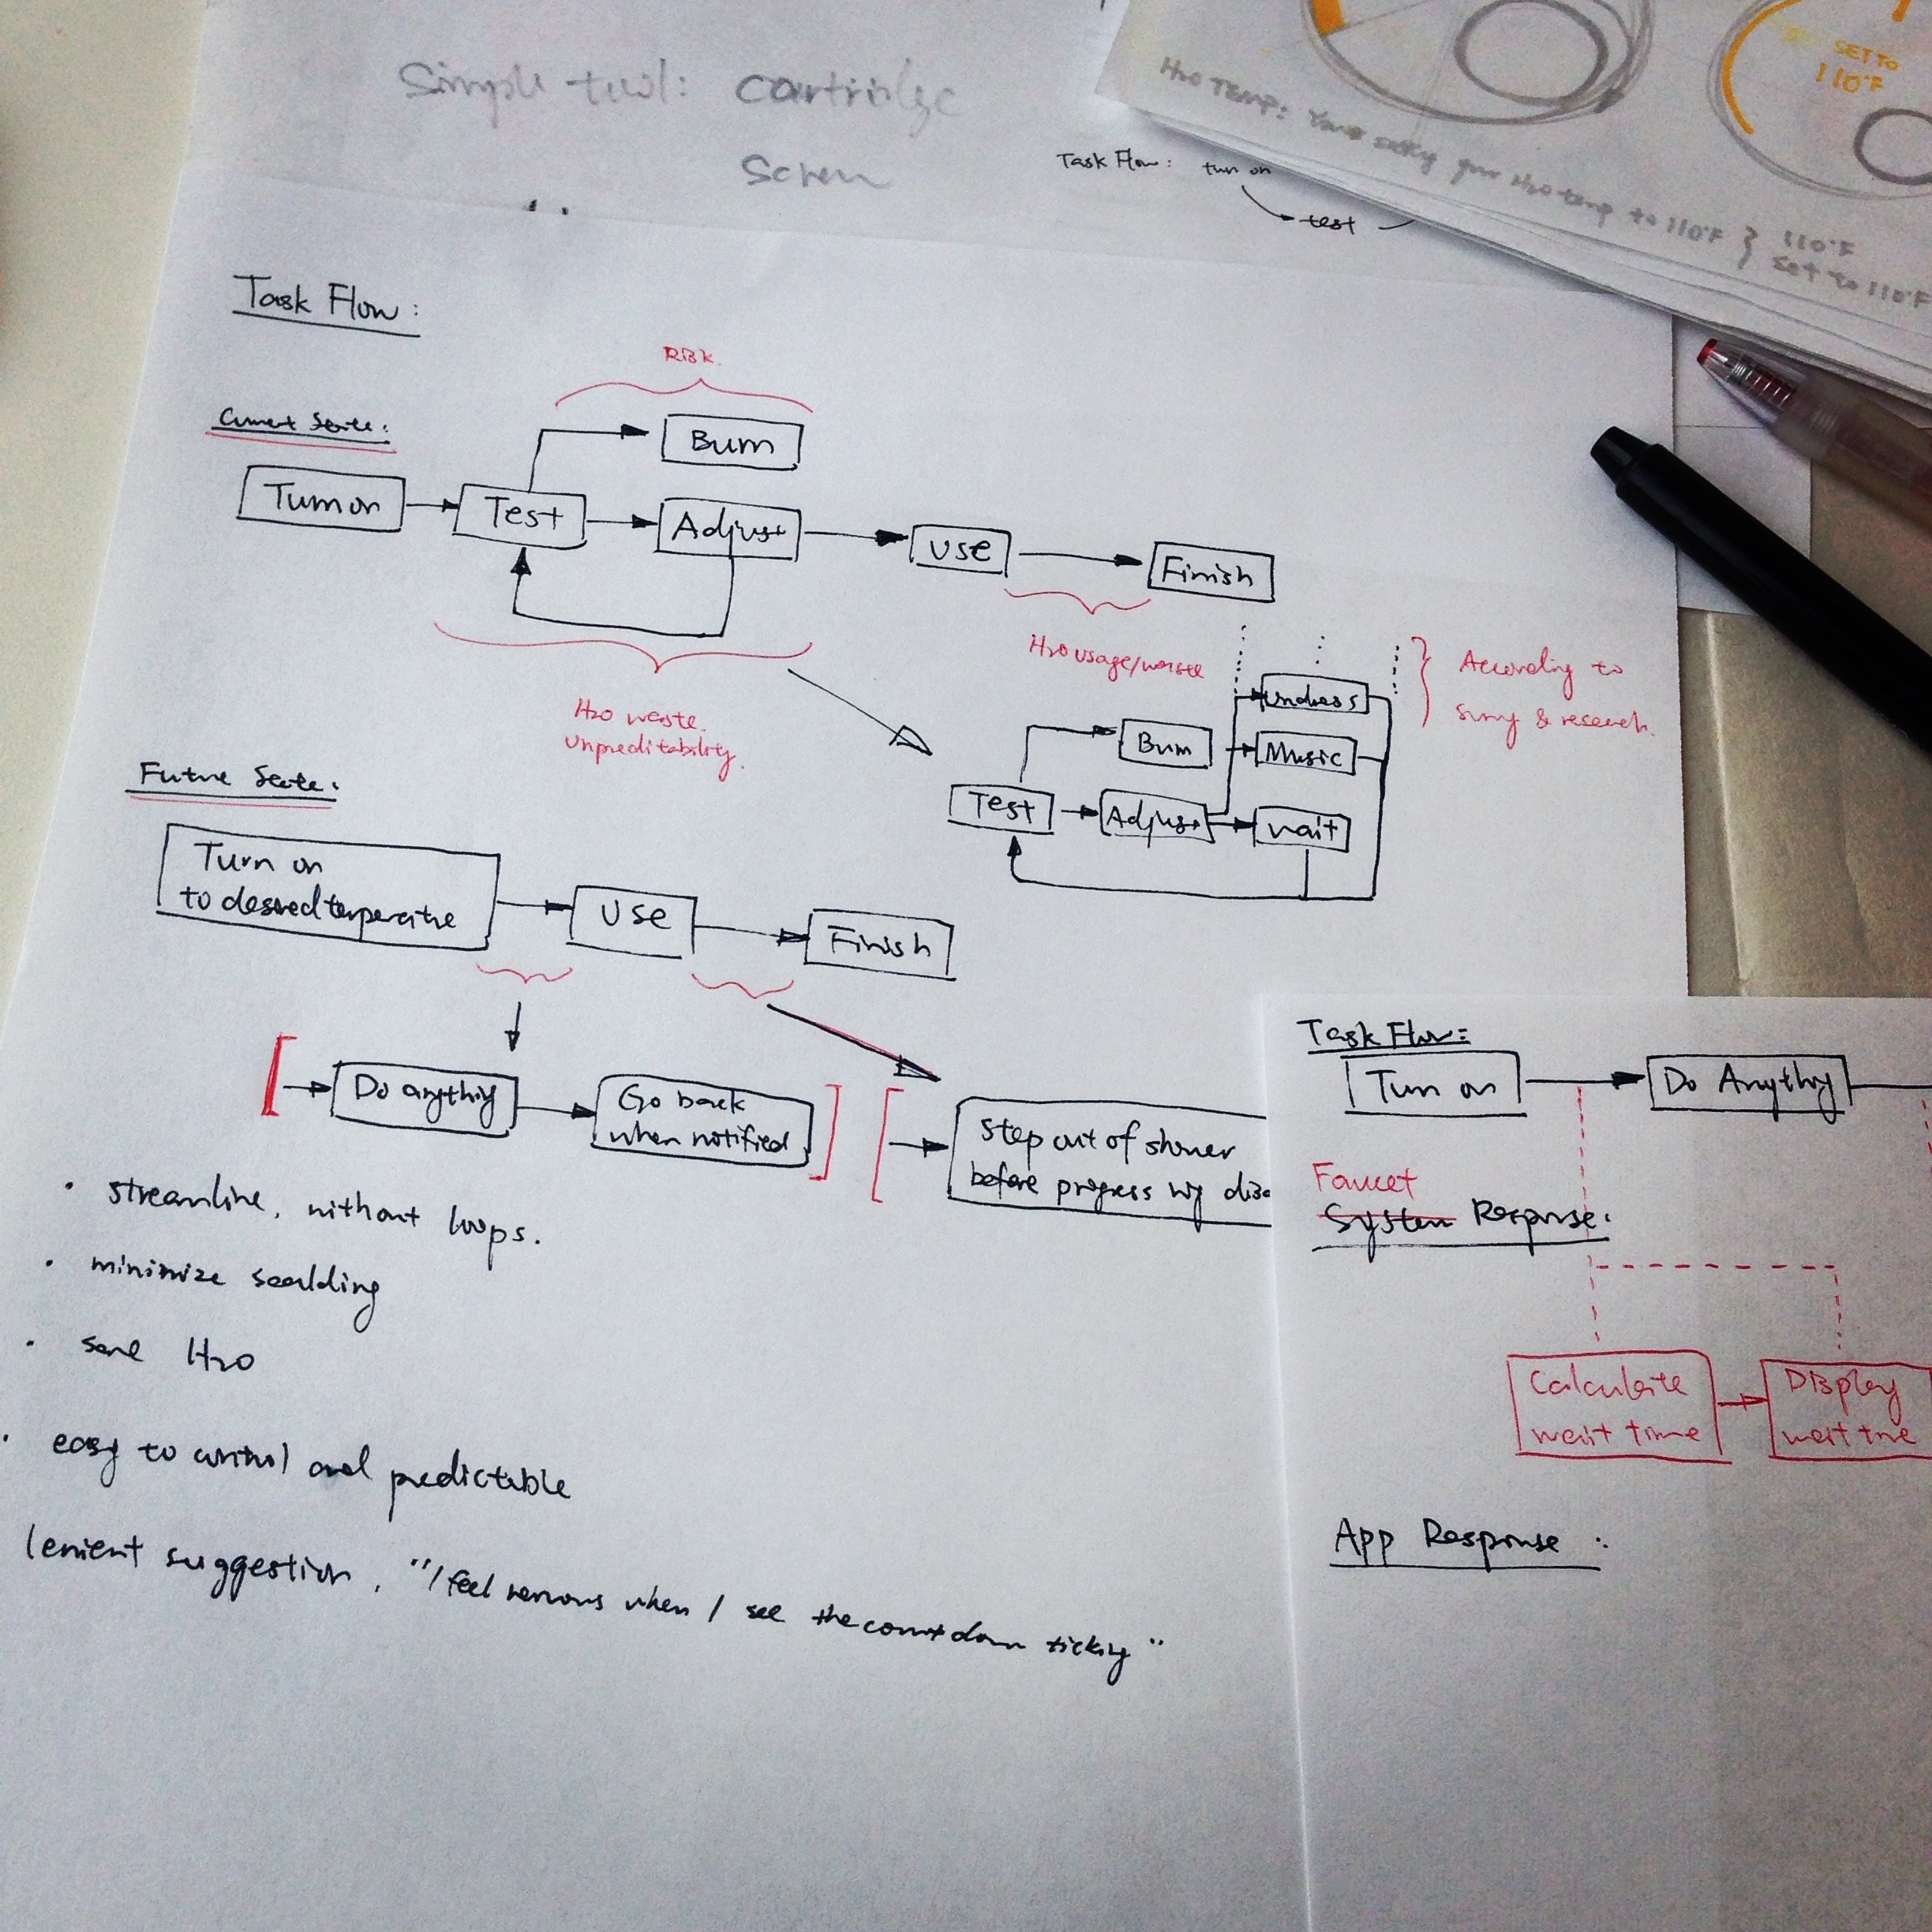 Simple tool: cartridge
Screw
SET TO
110°F
H2O TEMP: You're setting your H2O temp to 110°F } 110°F
set to 110°F
Task Flow: turn on
test
Task Flow:
Risk
Current State:
Burn
Turn on
Test
Adjust
Use
Finish
H2O usage/waste
H2O waste.
Unpreditability.
According to
survey & research.
Undress
Burn
Music
Test
Adjust
Wait
Future State:
Turn on
to desired temperature
Use
Finish
Do anything
Go back
when notified
Step out of shower
before progress
streamline, without loops.
minimize scalding
save H2O
easy to control and predictable
lenient suggestion, "I feel nervous when I see the countdown ticking"
Task Flow:
Turn on
Do Anything
Faucet
System Response:
Calculate
wait time
Display
wait time
App Response: